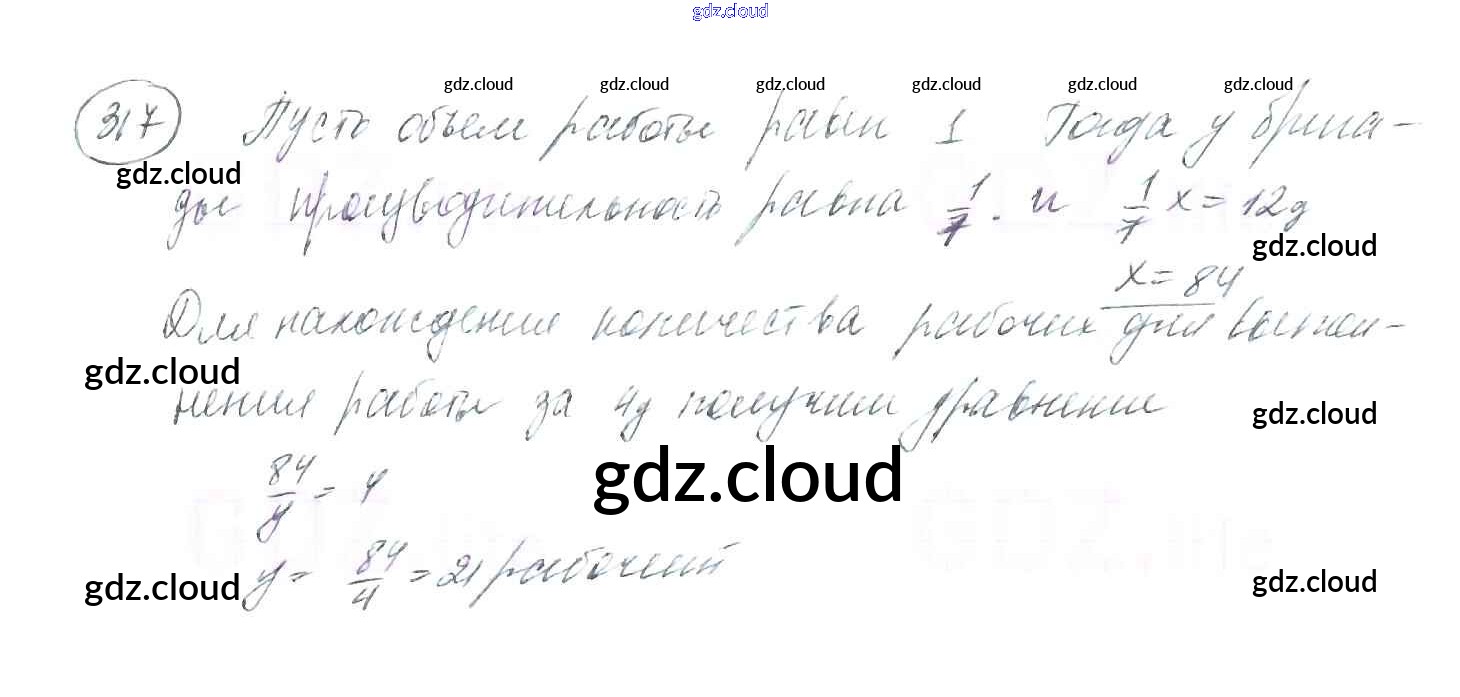 gdz.cloud
gdz.cloud gdz.cloud gdz.cloud gdz.cloud gdz.cloud gdz.cloud
317 Пусть объем работы равен 1 Тогда у брига-
gdz.cloud
ды производительность равна 1/7. и 1/7 x = 12д
gdz.cloud
x = 84
Для нахождения количества рабочих для выпол-
gdz.cloud
нения работы за 4д получим уравнение
gdz.cloud
84/y = 4
gdz.cloud
y = 84/4 = 21 рабочий
gdz.cloud
gdz.cloud